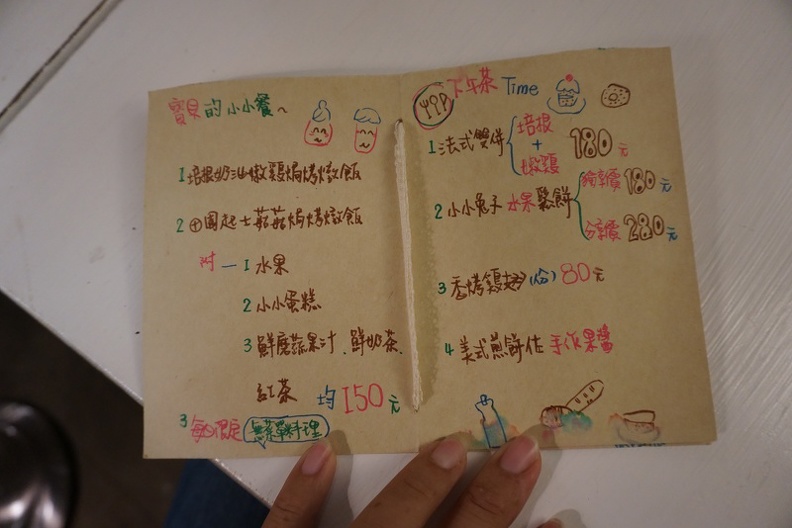 寶貝的小小餐~
1 培根奶油嫩雞焗烤燉飯
2 田園起士菇菇焗烤燉飯
附 — 1 水果
2 小小蛋糕
3 鮮磨蔬果汁、鮮奶茶、
紅茶 均150元
3 每日限定 無菜單料理
下午茶 Time
1 法式雙餅 培根 + 嫩雞 180元
2 小小兔子水果鬆餅 獨享價 180元
分享價 280元
3 香烤雞翅(份) 80元
4 美式煎餅佐手作果醬